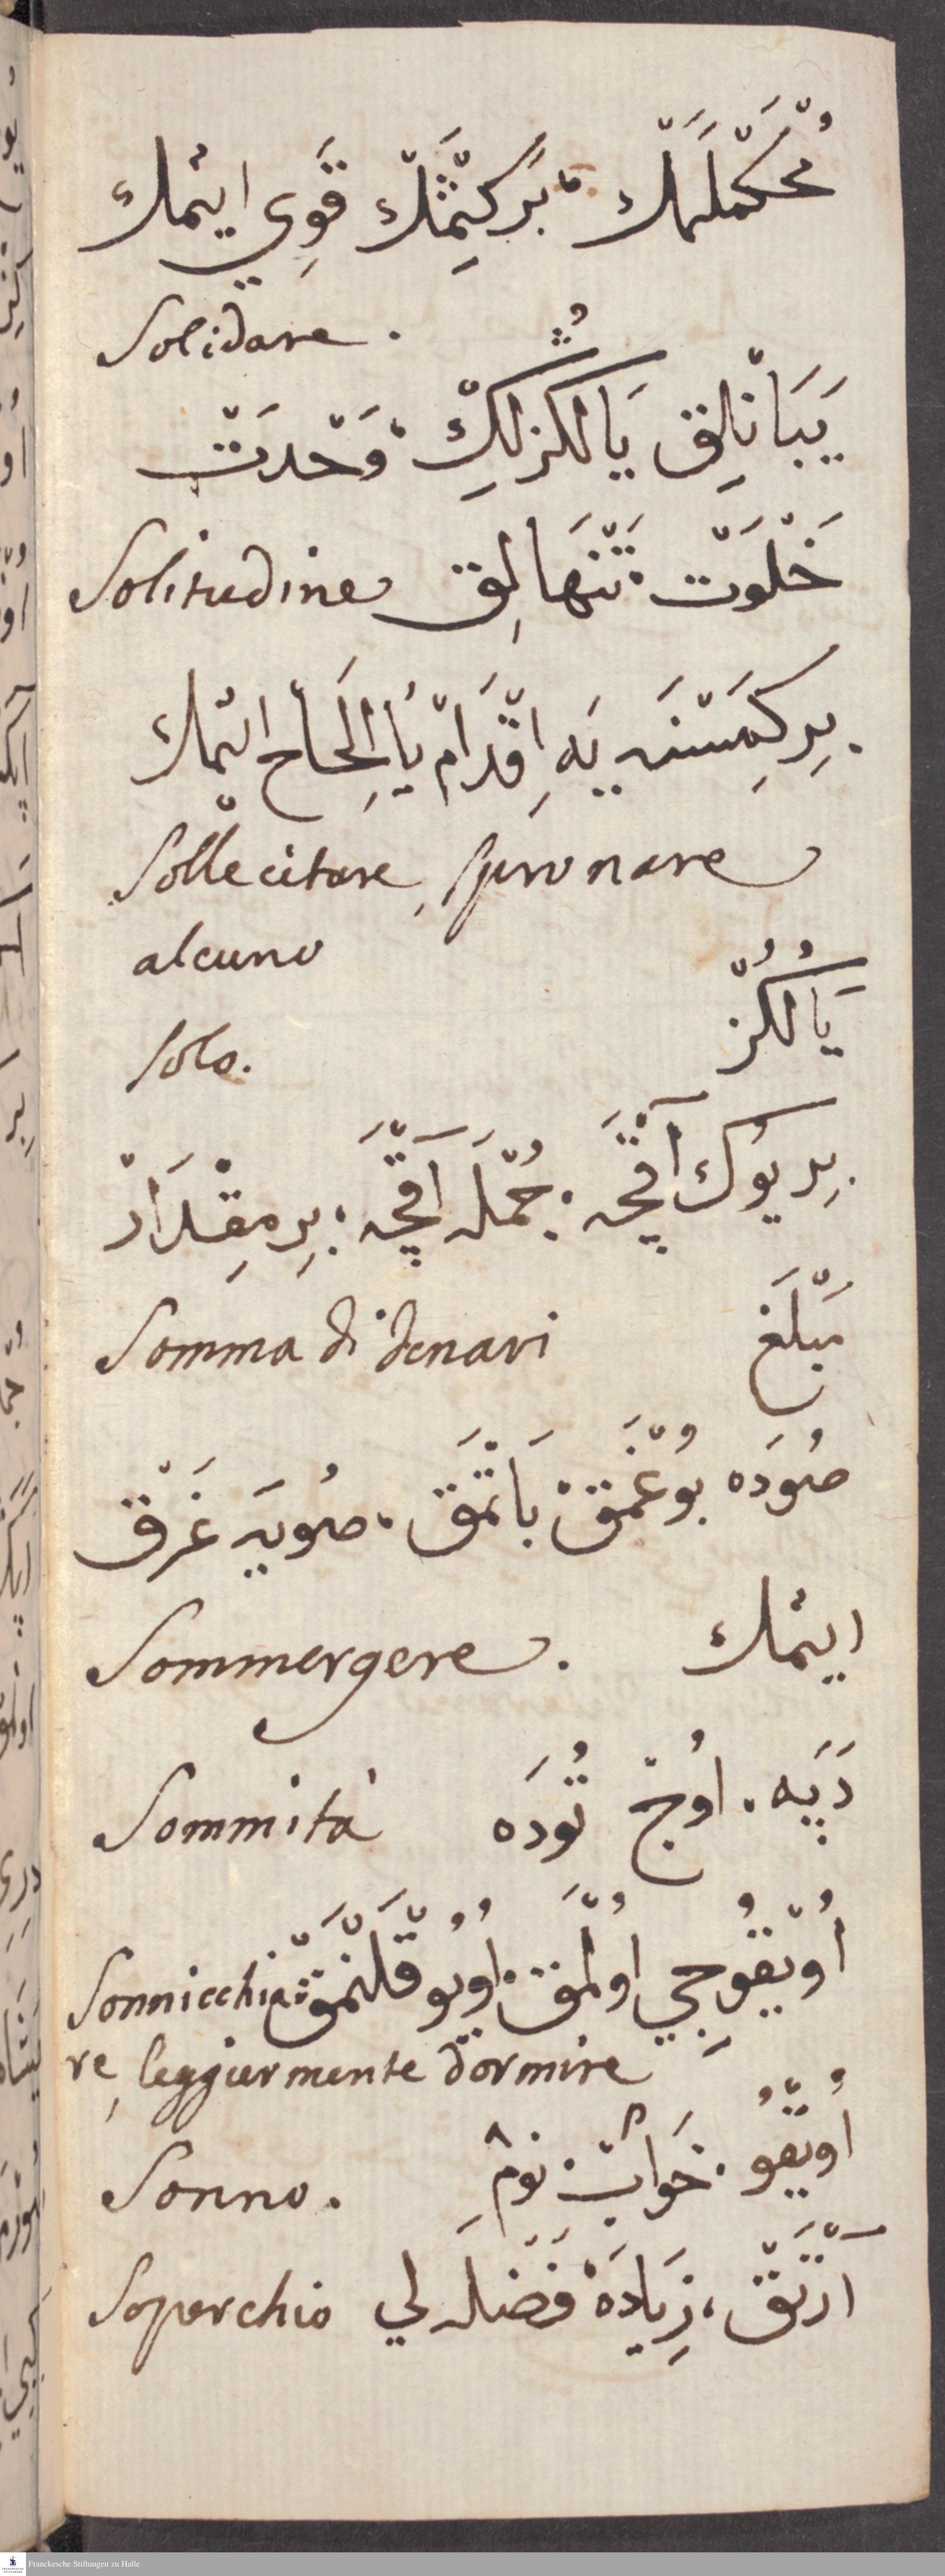 مُحْكَمْلَمَكْ ، بَرْكِتْمَكْ قَوِي ايتمك
Solidare .
يَبَانْلِق يَالكُزلِكْ ، وَحْدَتْ
خَلْوَتْ ، تَنْهَالِق Solitudine
بِر كِمَسْنَه يَه اِقْدَامْ يَا اِلْحَاح ايتمك
Sollecitare, spronare
alcuno
يَالكُزْ
Solo.
بِر بيوُك آقْچَه ، جُمْلَه آقْچَه ، بِر مِقْدَارْ
مَبْلَغ
Somma di denari
صُودَه بُوغْمَقْ بَاتْمَقْ ، صُويَه غَرْقْ
ايتمك
Sommergere .
دَپَه . اُوجْ تُودَه Sommità
اُويْقُوجِي اولْمَق ، اُويُوقْلَنْمَقْ Sonnicchia:
re, leggiermente dormire
اُويْقُو . خَوابْ ، نوم Sonno .
آرْتَقْ ، زِيَادَه فَضَلَه لي Soperchio
Franckesche Stiftungen zu Halle